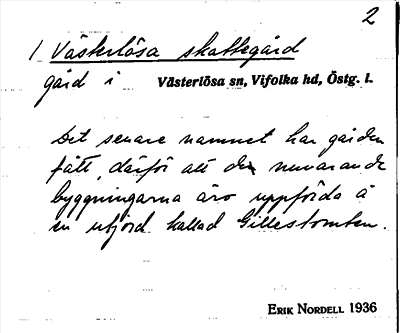 2
/ Västerlösa skattegård
gård i Västerlösa sn, Vifolka hd, Östg. l.
Det senare namnet har gården
fått, därför att de nuvarande
byggningarna äro uppförda å
en utjord kallad Gillestomten.
ERIK NORDELL 1936